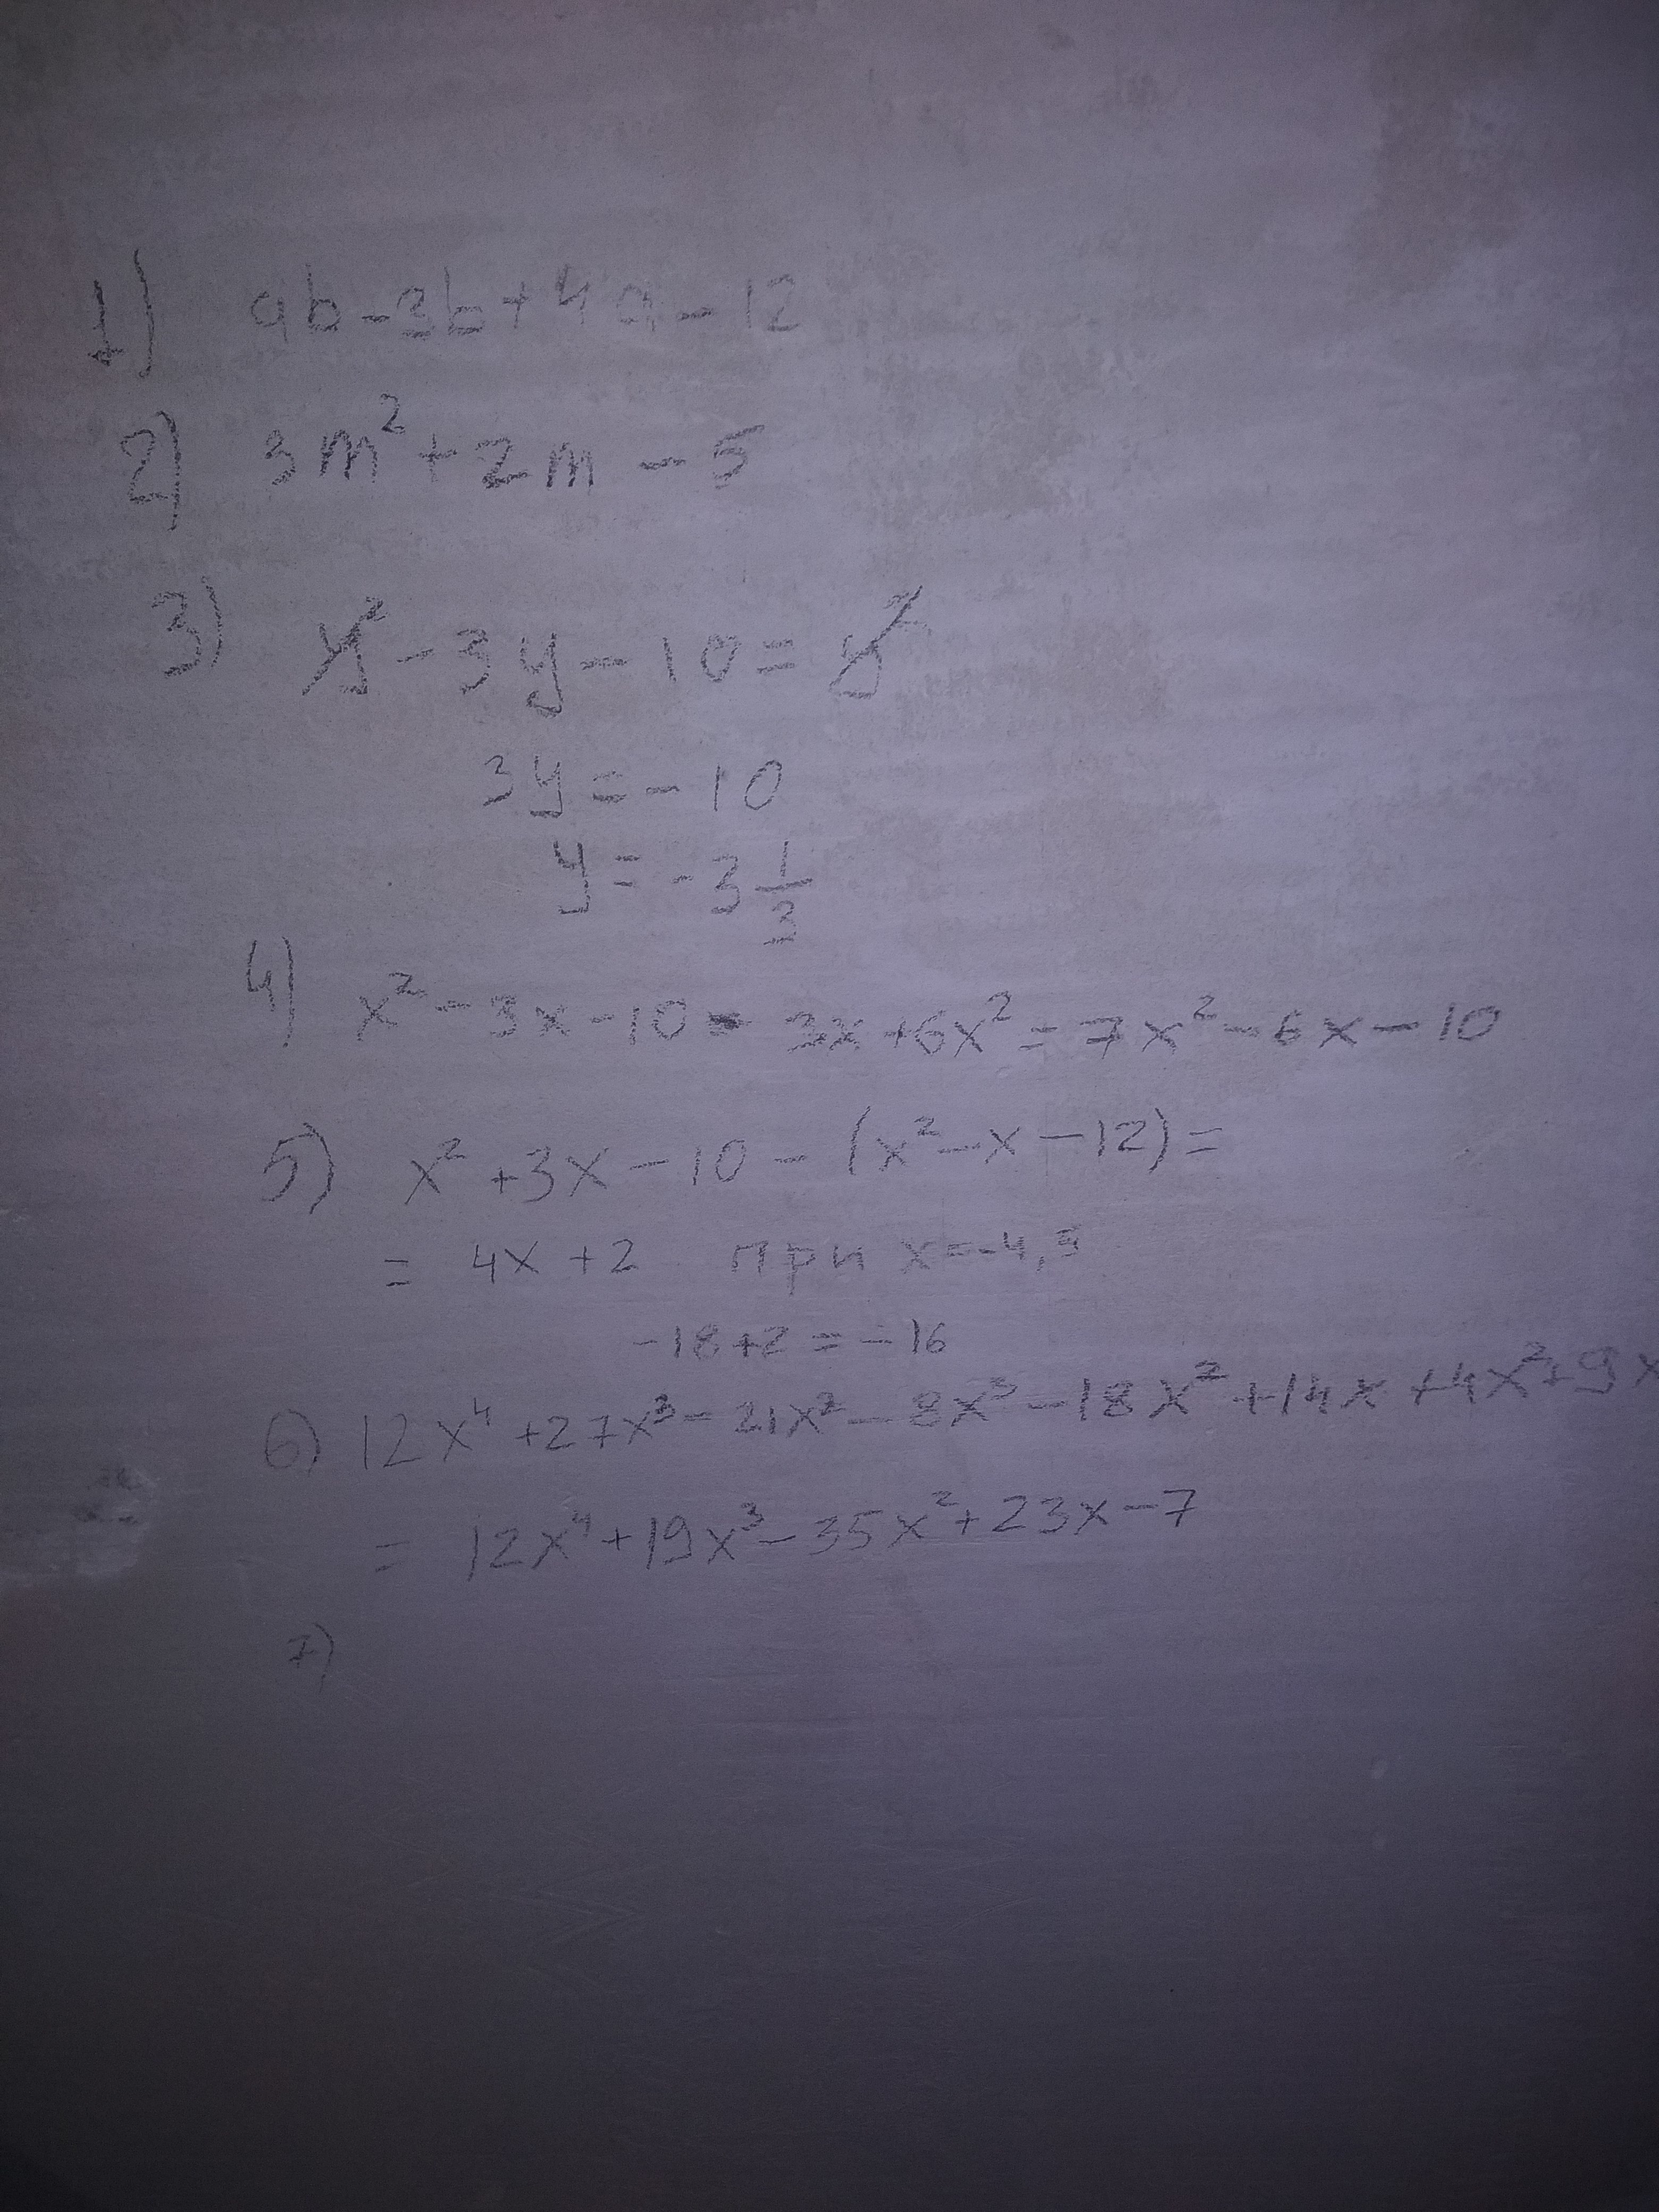 1) ab-3b+4a-12
2) 3m²+2m-5
3) y²-3y-10=y²
3y=-10
y=-3 1/3
4) x²-3x-10-3x+6x²=7x²-6x-10
5) x²+3x-10-(x²-x-12)=
= 4x+2 при x=-4,5
-18+2=-16
6) 12x⁴+27x³-21x²-8x³-18x²+14x+4x²+9x
= 12x⁴+19x³-35x²+23x-7
7)